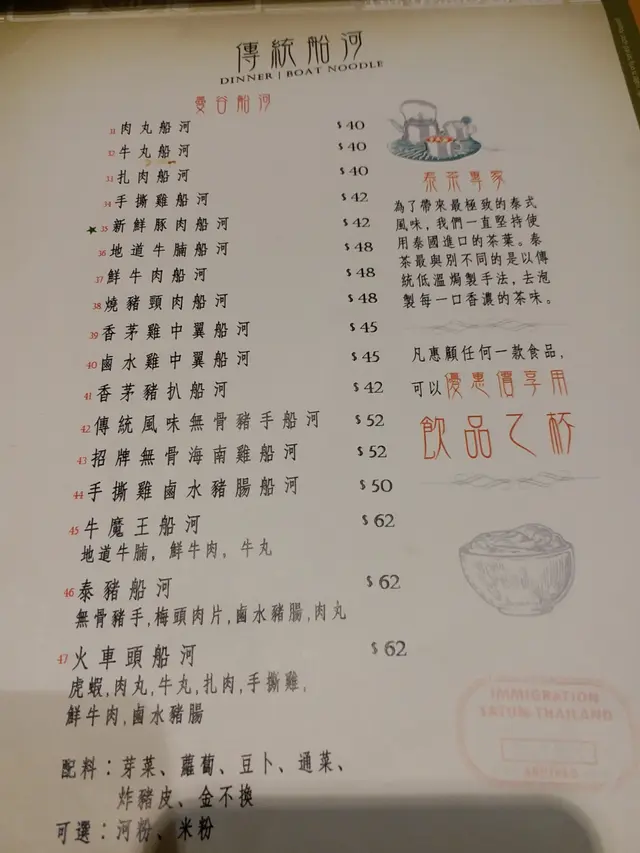 傳統船河
DINNER | BOAT NOODLE
曼谷船河
31 肉丸船河 $40
32 牛丸船河 $40
33 扎肉船河 $40
34 手撕雞船河 $42
★ 35 新鮮豚肉船河 $42
36 地道牛腩船河 $48
37 鮮牛肉船河 $48
38 燒豬頸肉船河 $48
39 香茅雞中翼船河 $45
40 鹵水雞中翼船河 $45
41 香茅豬扒船河 $42
42 傳統風味無骨豬手船河 $52
43 招牌無骨海南雞船河 $52
44 手撕雞鹵水豬腸船河 $50
45 牛魔王船河 $62
地道牛腩, 鮮牛肉, 牛丸
46 泰豬船河 $62
無骨豬手,梅頭肉片,鹵水豬腸,肉丸
47 火車頭船河 $62
虎蝦,肉丸,牛丸,扎肉,手撕雞,
鮮牛肉,鹵水豬腸
配料：芽菜、蘿蔔、豆卜、通菜、
炸豬皮、金不換
可選：河粉、米粉
泰茶專家
為了帶來最極致的泰式
風味，我們一直堅持使
用泰國進口的茶葉。泰
茶最與別不同的是以傳
統低溫焗製手法，去泡
製每一口香濃的茶味。
凡惠顧任何一款食品,
可以優惠價享用
飲品乙杯
IMMIGRATION
THAILAND